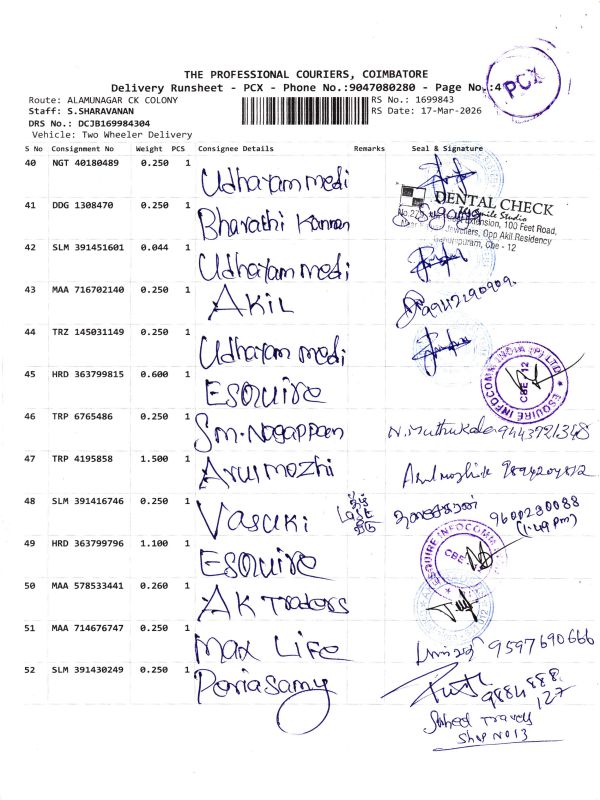 THE PROFESSIONAL COURIERS, COIMBATORE
Delivery Runsheet - PCX - Phone No.:9047080280 - Page No.:4
PCX
Route: ALAMUNAGAR CK COLONY
RS No.: 1699843
Staff: S.SHARAVANAN
RS Date: 17-Mar-2026
DRS No.: DCJB169984304
Vehicle: Two Wheeler Delivery
S No Consignment No Weight PCS Consignee Details Remarks Seal & Signature
40 NGT 40180489 0.250 1 Udhayam medi
41 DDG 1308470 0.250 1 Bharathi Kannan
DENTAL CHECK
Smile Studio
Extension, 100 Feet Road,
Jewellers, Opp Akil Residency
Cbe - 12
42 SLM 391451601 0.044 1 Udhayam medi
43 MAA 716702140 0.250 1 AKIL
44 TRZ 145031149 0.250 1 Udhayam medi
45 HRD 363799815 0.600 1 ESQUIRE
ESQUIRE INFOCOMM INDIA (P) LTD
CBE - 12
46 TRP 6765486 0.250 1 Sm. Nagappan
47 TRP 4195858 1.500 1 Arulmozhi
48 SLM 391416746 0.250 1 Vasuki 9600230088
(1:49 pm)
49 HRD 363799796 1.100 1 ESQUIRE
ESQUIRE INFOCOMM
CBE
50 MAA 578533441 0.260 1 AK Traders
51 MAA 714676747 0.250 1 Max LIFE 9597690666
52 SLM 391430249 0.250 1 Periasamy
9884888
127
Travels
Shop NO 13